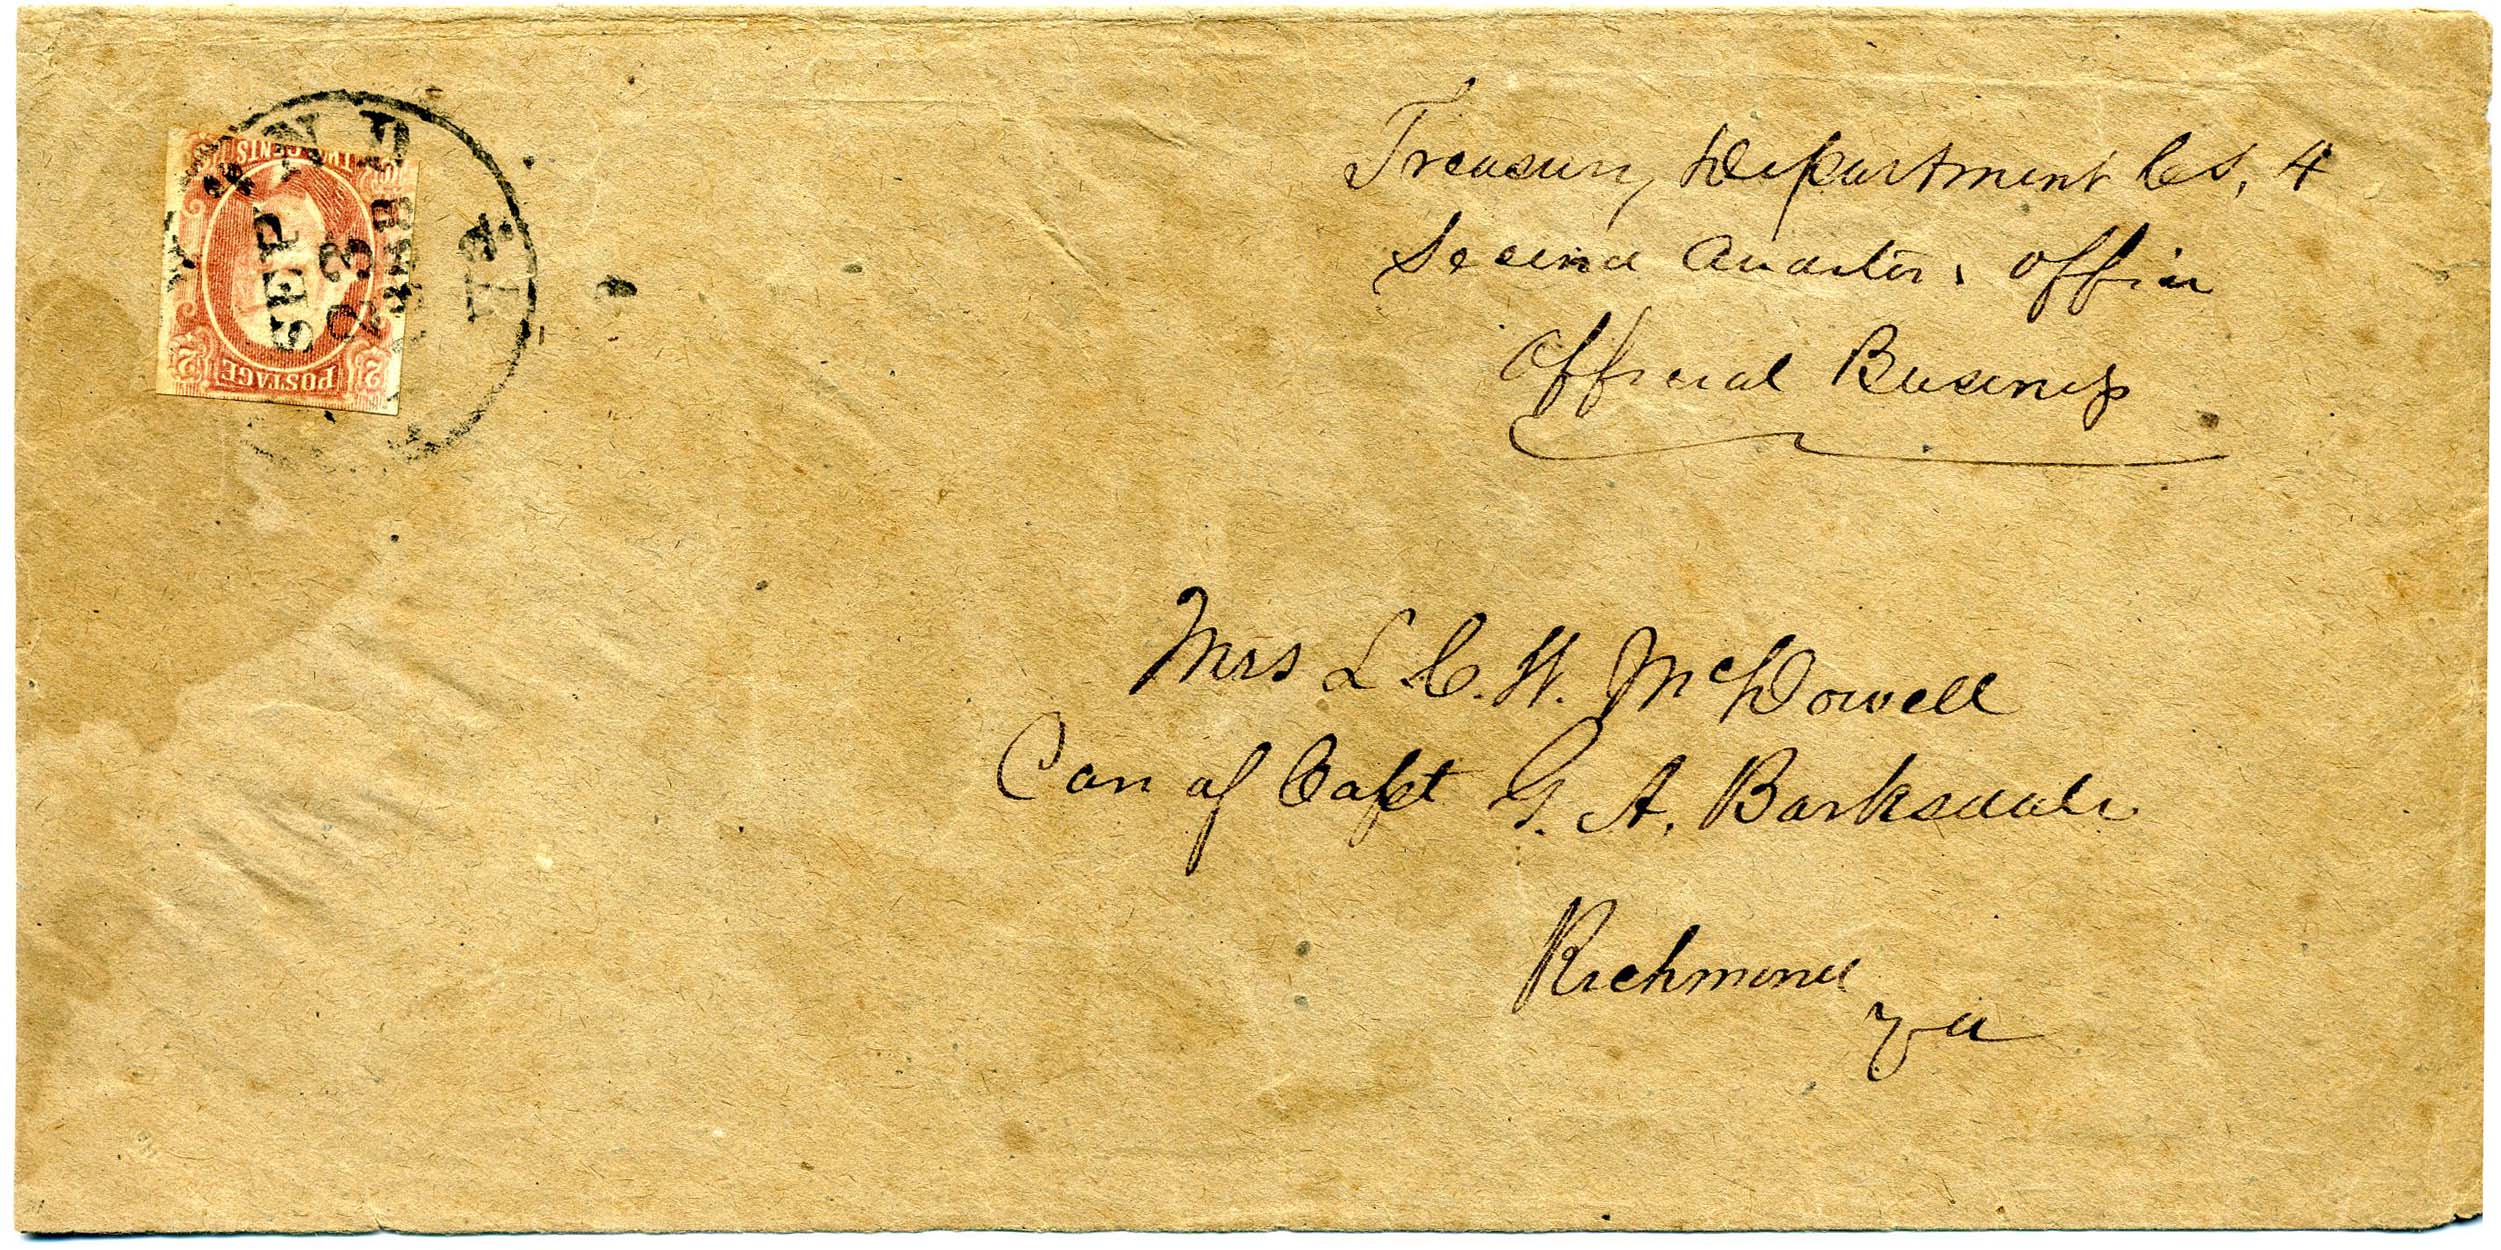 TWO CENTS
2 POSTAGE 2
SEP
23
Treasury Department C.S. A
Second Auditors Office
Official Business
Mrs L. C. W. McDowell
Care of Capt G. A. Barksdale
Richmond
Va